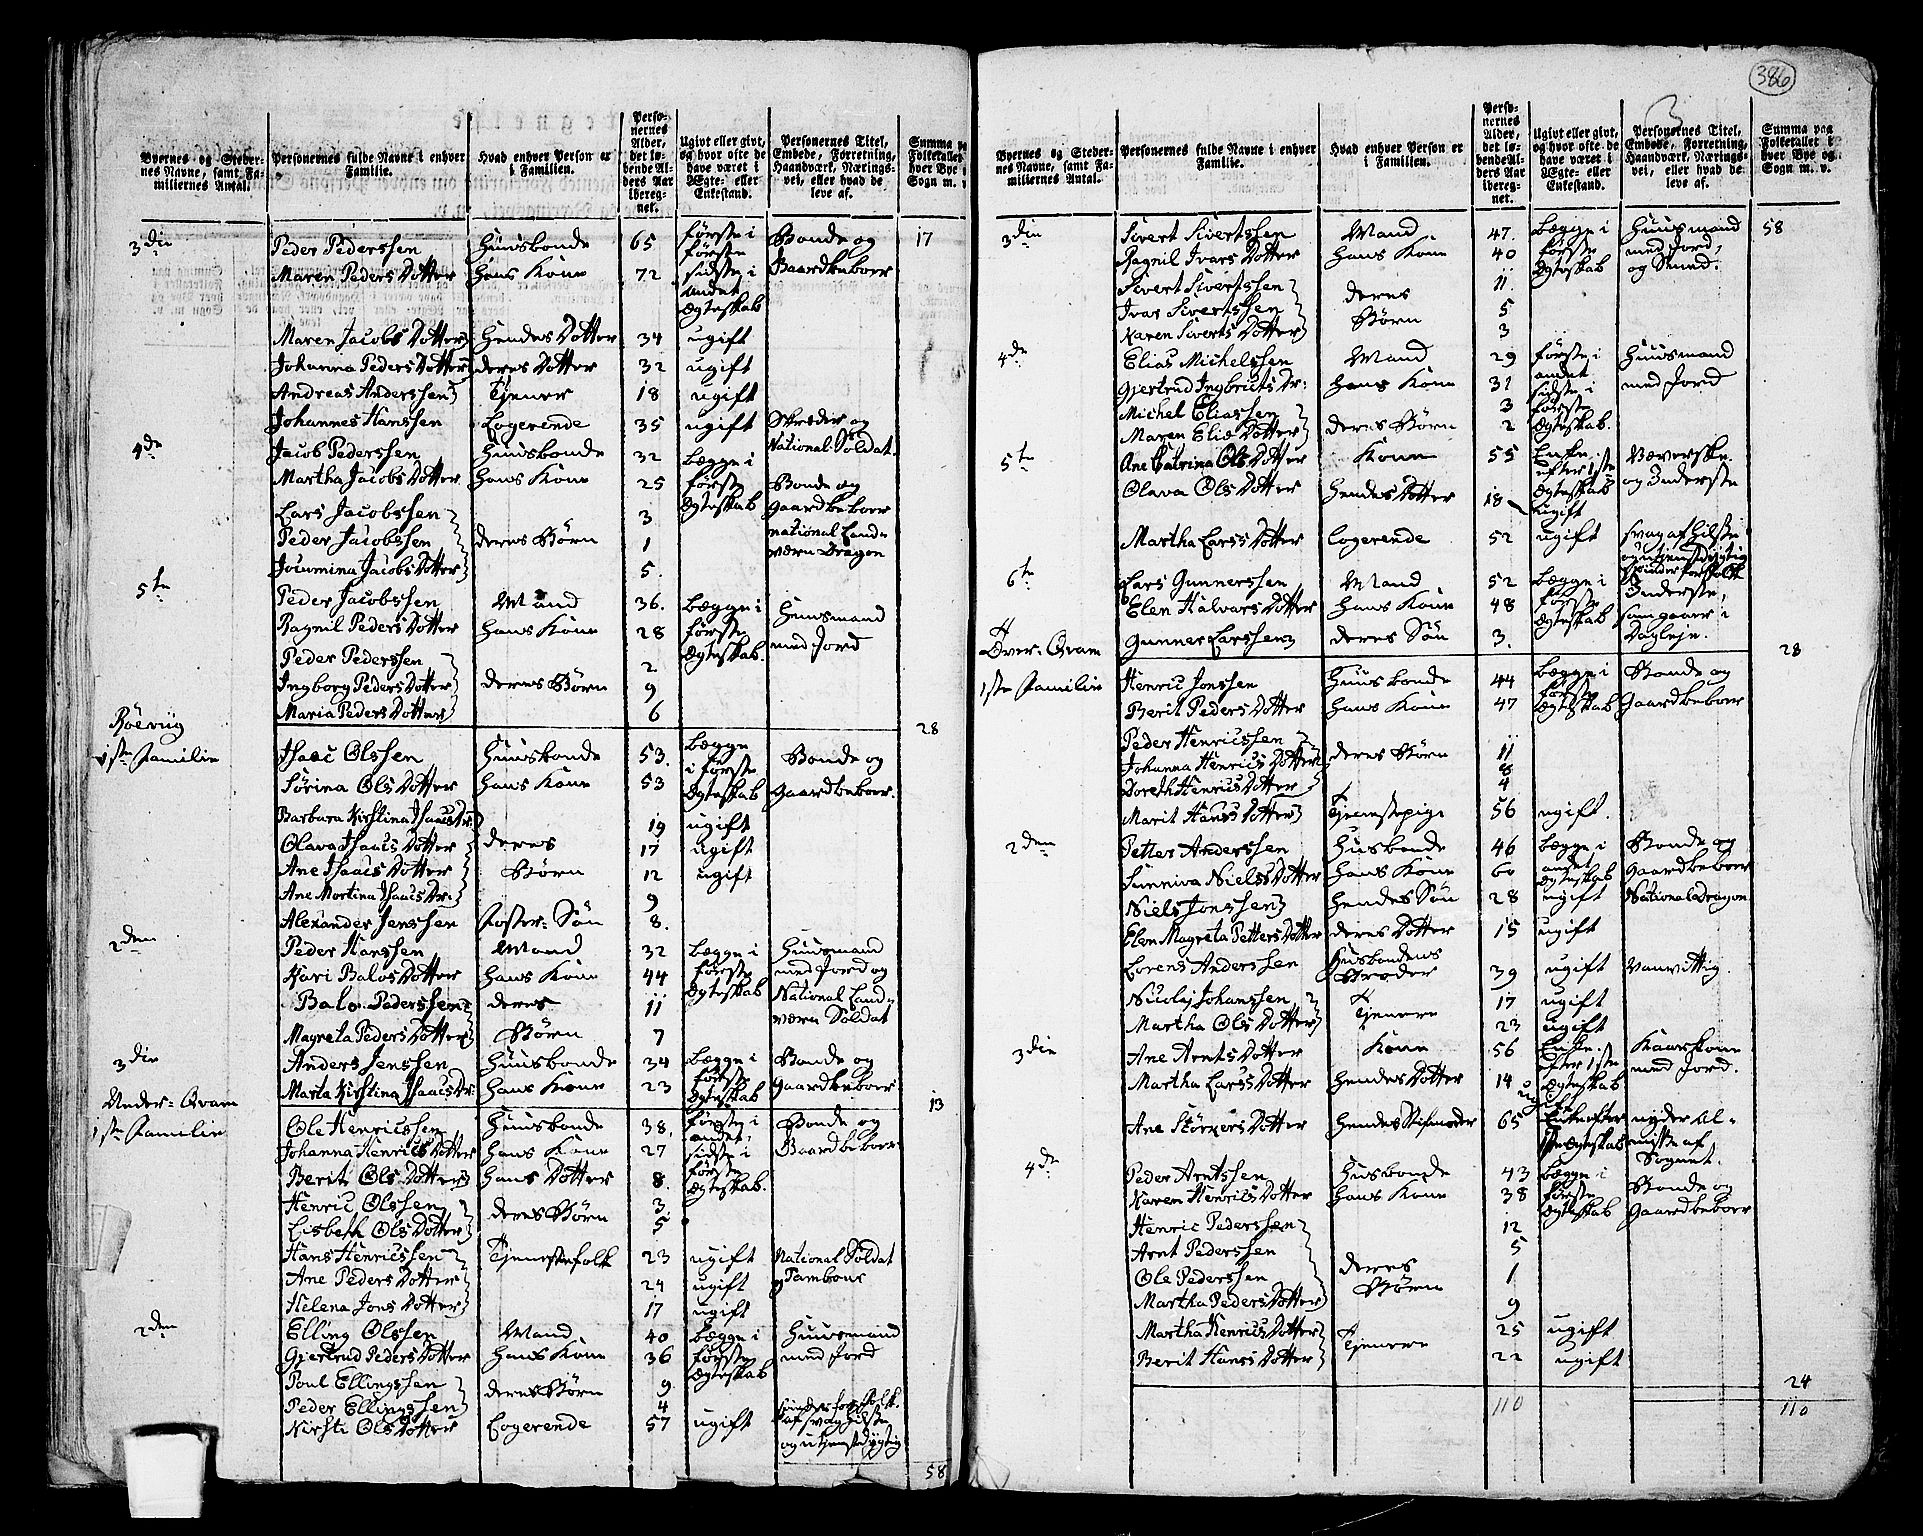 386
Byernes og Steder-
nes Navne, samt Fa-
miliernes Antal.
Personernes fulde Navne i enhver
Familie.
Hvad enhver Person er
i Familien.
Perso-
nernes
Alder,
det lø-
bende Al-
ders Aar
iberegnet.
Ugivt eller givt,
og hvor ofte de
have været i
Ægte- eller
Enkestand.
Personernes Titel,
Embede, Forretning,
Haandværk, Nærings-
vei, eller hvad de
leve af.
Summa
Folketallet
hver Bye
Sogn m. v.
3die Peder Pederssen Huusbonde 65 første i første Bonde og 17
Maren Peders Dotter hans Kone 72 sidste i andet Ægteskab Gaardbeboer
Maren Jacobs Dotter hendes Dotter 34 ugift
Johanna Peders Dotter deres Dotter 32 ugift
Andreas Anderssen Tjener 18 ugift
Johannes Hanssen Logerende 35 ugift Skræder og National Soldat.
4de Jacob Pederssen Huusbonde 32 Begge i
Martha Jacobs Dotter hans Kone 25 første Ægteskab Bonde og Gaardbeboer
Lars Jacobssen 3 national Land-
Peder Jacobssen deres Børn 1 værn Dragon
Jocumina Jacobs Dotter 5.
5te Peder Jacobssen Mand 36. Begge i Huusmand
Ragnil Peders Dotter hans Kone 28 første Ægteskab. med Jord
Peder Pederssen 2
Ingborg Peders Dotter deres Børn 9
Maria Peders Dotter 6
28
Röevüg
1ste Familie Isaac Olssen Huusbonde 53. Begge i første Bonde og
Sörina Ols Dotter hans Kone 53 Ægteskab Gaardbeboer.
Barbara Kirstina Isaacs Dr. 19 ugift
Olava Isaacs Dotter deres 17 ugift
Ane Isaacs Dotter Børn 12 ugift
Ane Mortina Isaacs Dr. 9
Alexander Jenssen Foster-Søn 8.
2den Peder Hanssen Mand 32 Begge i Huusmand
Kari Balos Dotter hans Kone 44 første Ægteskab med Jord og
Balo Pederssen deres 11 National Land-
Magreta Peders Dotter Børn 7 værn Soldat
3die Anders Jenssen Huusbonde 34 Begge i Bonde og
Marta Kirstina Isaacs Dr. hans Kone 23 første Ægteskab Gaardbeboer
13
Under-Qvam
1ste Familie Ole Henricssen Huusbonde 38. første i andet, Bonde og
Johanna Henrics Dotter hans Kone 27 sidste i Gaardbeboer
Berit Ols Dotter hans Dotter 8. første Ægteskab.
Henric Olssen 3
Lisbeth Ols Dotter deres Børn 5
Hans Henricssen Tjenestefolk 23 ugift National Soldat
Ane Peders Dotter 24 ugift Tambour
Helena Jons Dotter 17 ugift
2den Elling Olssen Mand 40 Begge i Huusmand
Gjertrud Peders Dotter hans Kone 36 første Ægteskab med Jord
Poul Ellingssen deres Børn 9
Peder Ellingssen 4
Kirsti Ols Dotter Logerende 57 ugift af svag Helse og utjenestdygtig
58
Byernes og Steder-
nes Navne, samt Fa-
miliernes Antal.
Personernes fulde Navne i enhver
Familie.
Hvad enhver Person er
i Familien.
Perso-
nernes
Alder,
det lø-
bende Al-
ders Aar
iberegnet.
Ugivt eller givt,
og hvor ofte de
have været i
Ægte- eller
Enkestand.
Personernes Titel,
Embede, Forretning,
Haandværk, Nærings-
vei, eller hvad de
leve af.
Summa paa
Folketallet i
hver Bye og
Sogn m. v.
3die Sivert Sivertssen Mand 47. Begge i Huusmand 58
Ragnil Ivars Dotter hans Kone 40 første Ægteskab med Jord, og Smed.
Sivert Sivertssen 11
Ivar Sivertssen deres Børn 5
Karen Siverts Dotter 3
4de Elias Michelssen Mand 29 første i andet Huusmand
Gjertrud Ingbricts Dr. hans Kone 31 sidste i med Jord
Michel Eliassen 3 første
Maren Eliæ Dotter deres Børn 2 Ægteskab.
5te Ane Catrina Ols Dotter Kone 55 Enke efter 1ste Ægteskab Væverske og Inderste
Olava Ols Dotter hendes Dotter 18 ugift
Martha Larss Dotter logerende 52 ugift svag af Helse
6te Lars Gunnerssen Mand 52 Begge i Inderste,
Elen Halvars Dotter hans Kone 48 første Ægteskab som gaaer i
Gunner Larssen deres Søn 3. Dagleje.
28
Över-Qvam
1ste Familie Henric Jonssen Huusbonde 44 Begge i Bonde og
Berit Peders Dotter hans Kone 47 første Ægteskab Gaardbeboer
Peder Henricssen 11
Johanna Henrics Dotter deres Børn 8
Doreth Henrics Dotter 4
Marit Hans Dotter Tjenestepige 56 ugift.
2den Petter Anderssen Husbonde 46 Begge i Bonde og
Sunniva Niels Dotter hans Kone 60 andet Ægteskab Gaardbeboer
Niels Jonssen hendes Søn 28 ugift National Dragon
Elen Magreta Petters Dotter deres Dotter 15 ugift
Lorens Anderssen Husbondens Broder 39 ugift Vanvittig.
Nicolaj Johanssen 17 ugift
Martha Ols Dotter Tjenere 23 ugift
3die Ane Arnts Dotter Kone 56 Enke efter 1ste Ægteskab med Jord.
Martha Larss Dotter hendes Dotter 14 ugift
Ane Störkers Dotter hendes Stifmoder 65 Enke efter 1ste Ægteskab nyder Al-
misse af
Sognet.
4de Peder Arntssen Husbonde 43 Begge i Bonde og
Karen Henrics Dotter hans Kone 38 første Ægteskab Gaardbeboer
Henric Pederssen 12
Arnt Pederssen deres 5
Ole Pederssen Børn 1
Martha Peders Dotter 9
Martha Henrics Dotter Tjenere 25 ugift
Berit Hans Dotter 22 ugift
24
110 110